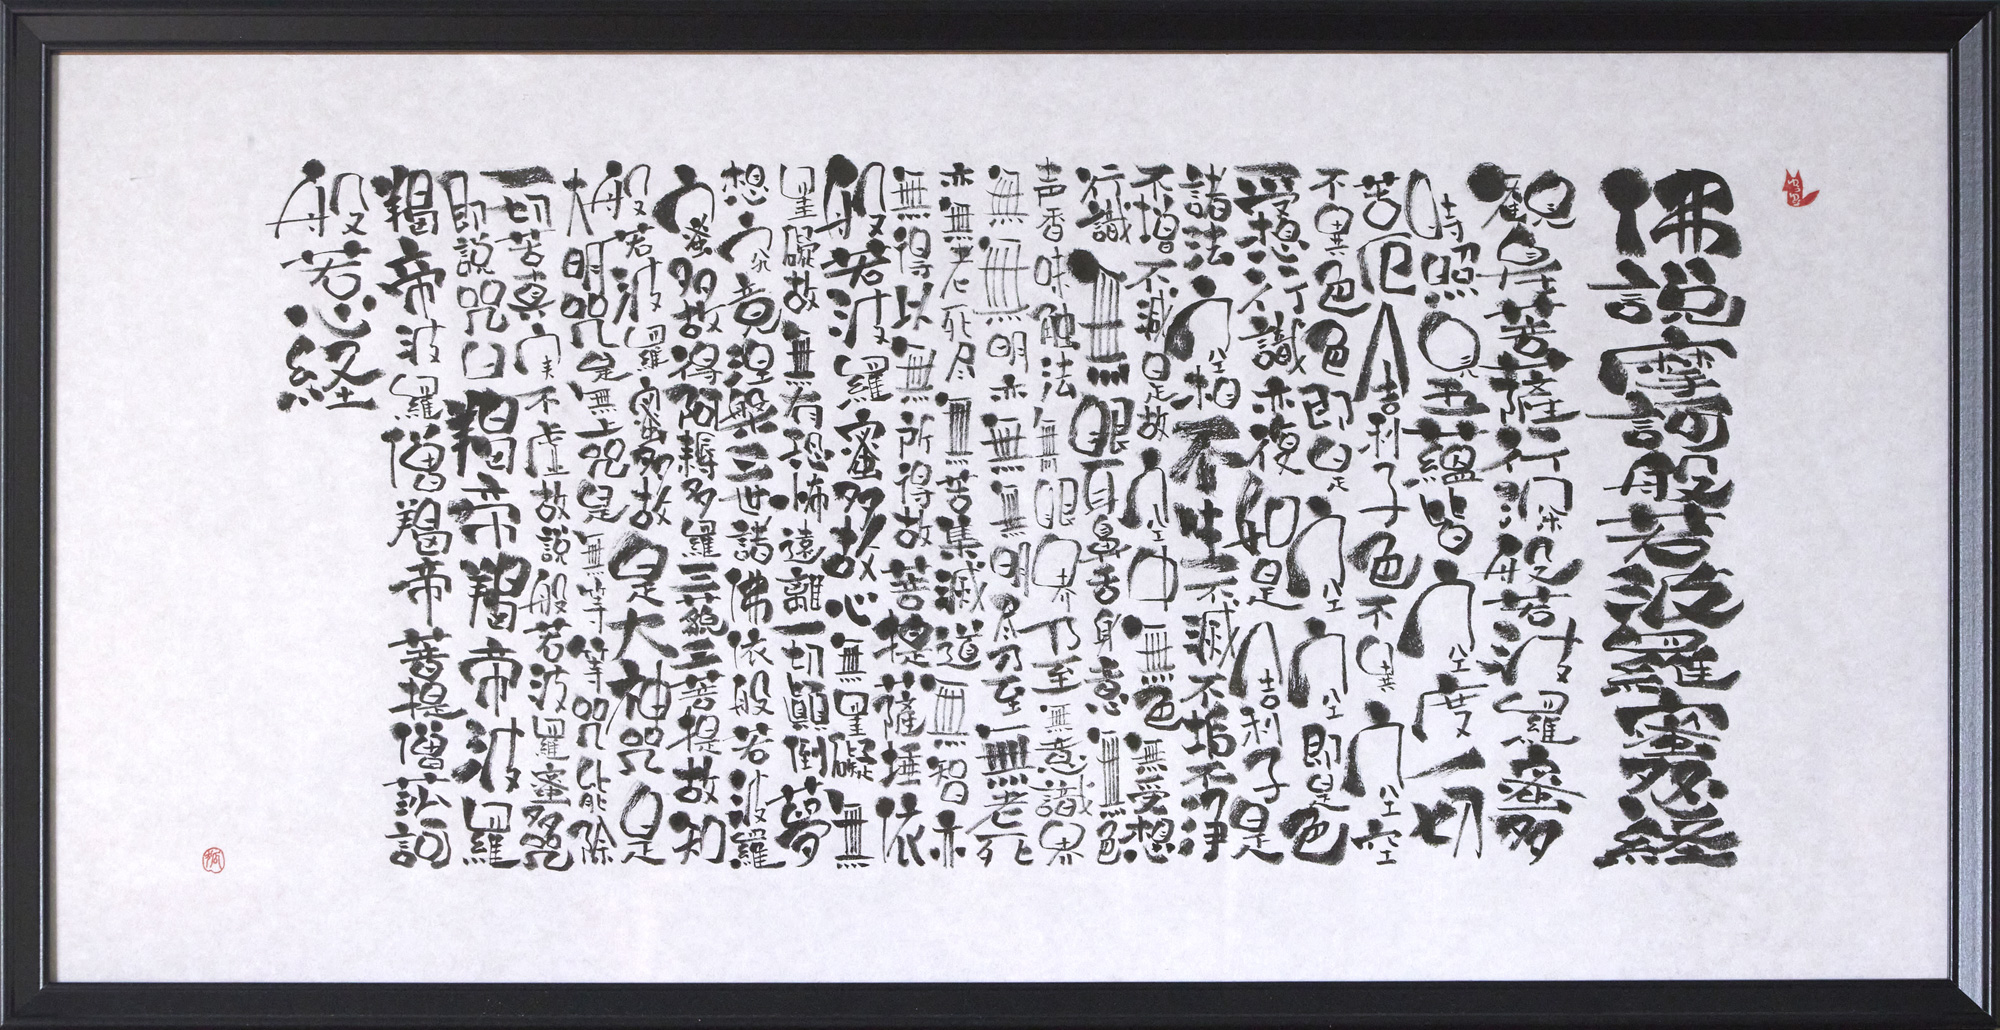 佛説摩訶般若波羅蜜多心経
観自在菩薩行深般若波羅蜜多
時照見五蘊皆空度一切
苦厄舎利子色不異空空
不異色色即是空空即是色
受想行識亦復如是舎利子是
諸法空相不生不滅不垢不浄
不増不減是故空中無色無受想
行識無眼耳鼻舌身意無色
声香味触法無眼界乃至無意識界
無無明亦無無明尽乃至無老死
亦無老死尽無苦集滅道無智亦
無得以無所得故菩提薩埵依
般若波羅蜜多故心無罣礙無
罣礙故無有恐怖遠離一切顛倒夢
想究竟涅槃三世諸佛依般若波羅
蜜多故得阿耨多羅三藐三菩提故知
般若波羅蜜多故是大神呪是
大明呪是無上呪是無等等呪能除
一切苦真実不虚故説般若波羅蜜多呪
即説呪曰羯帝羯帝波羅
羯帝波羅僧羯帝菩提僧莎訶
般若心経